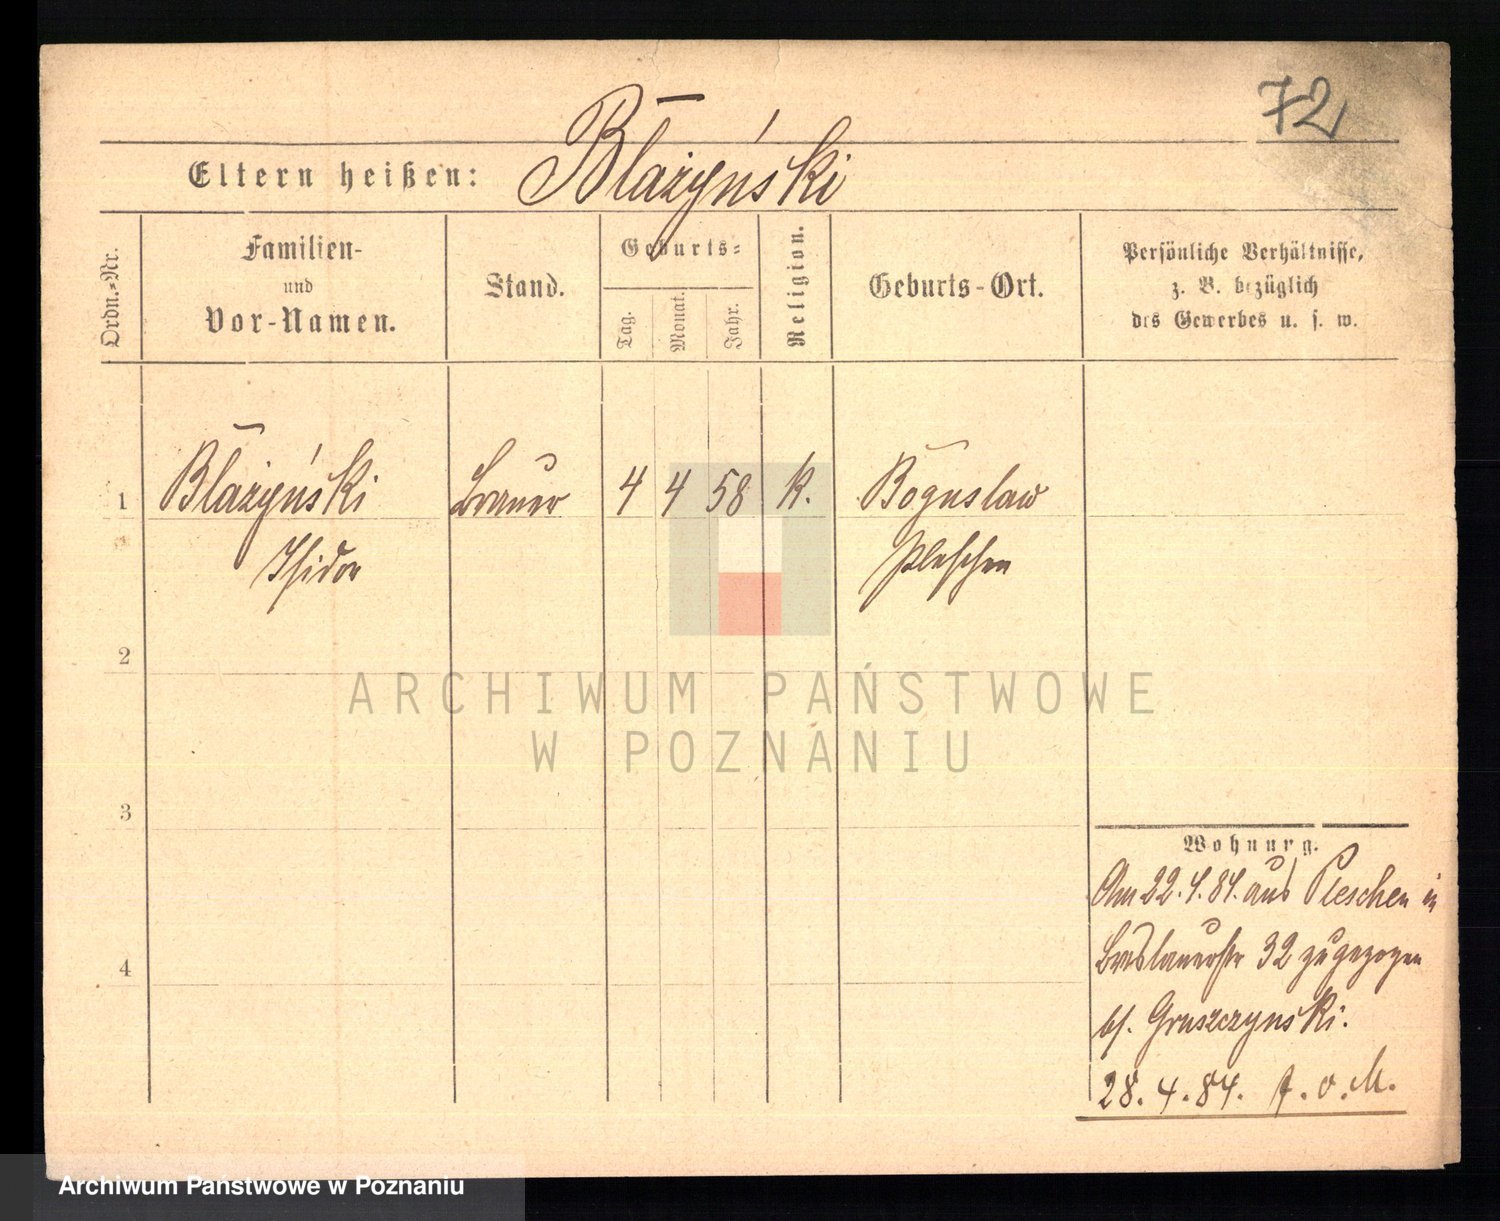 72
Eltern heißen: Błażyński
Ordn.-Nr.
Familien-
und
Vor-Namen.
Stand.
Geburts-
Tag.
Monat.
Jahr.
Religion.
Geburts-Ort.
Persönliche Verhältnisse,
z. B. bezüglich
des Gewerbes u. s. w.
1 Błażyński Brauer 4 4 58 k. Bogusław
Isidor Pleschen
2
3
4
Wohnung.
Am 22.4.84. aus Pleschen in
Breslauerstr 32 zugezogen
bf. Gruszczynski.
28.4.84. o. M.
ARCHIWUM PAŃSTWOWE
W POZNANIU
Archiwum Państwowe w Poznaniu